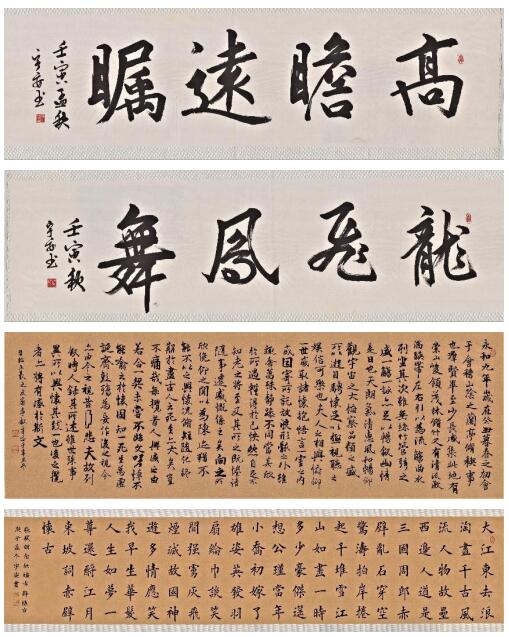 高瞻遠瞩
壬寅孟秋
龍飛鳳舞
壬寅秋
永和九年歲在癸丑暮春之初會
于會稽山陰之蘭亭脩稧事
也群賢畢至少長咸集此地有
崇山峻領茂林脩竹又有清流激
湍暎帶左右引以為流觴曲水
列坐其次雖無絲竹管弦之
盛一觴一詠亦足以暢叙幽情
是日也天朗氣清惠風和暢仰
觀宇宙之大俯察品類之盛
所以遊目騁懷足以極視聽之
娛信可樂也夫人之相與俯仰
一世或取諸懷抱悟言一室之內
或因寄所託放浪形骸之外雖
趣舍萬殊靜躁不同當其欣
於所遇暫得於己快然自足不
知老之將至及其所之既惓情
隨事遷感慨係之矣向之所
欣俛仰之間以為陳迹猶不
能不以之興懷況脩短隨化終
期於盡古人云死生亦大矣豈
不痛哉每攬昔人興感之由
若合一契未嘗不臨文嗟悼不
能喻之於懷固知一死生為虛
誕齊彭殤為妄作後之視今
亦由今之視昔悲夫故列
叙時人錄其所述雖世殊事
異所以興懷其致一也後之攬
者亦將有感於斯文
大江東去浪
淘盡千古風
流人物故壘
西邊人道是
三國周郎赤
壁亂石穿空
驚濤拍岸捲
起千堆雪江
山如畫一時
多少豪傑遙
想公瑾當年
小喬初嫁了
雄姿英發羽
扇綸巾談笑
間強虜灰飛
煙滅故國神
遊多情應笑
我早生華髮
人生如夢一
尊還酹江月
東坡詞赤壁
懷古